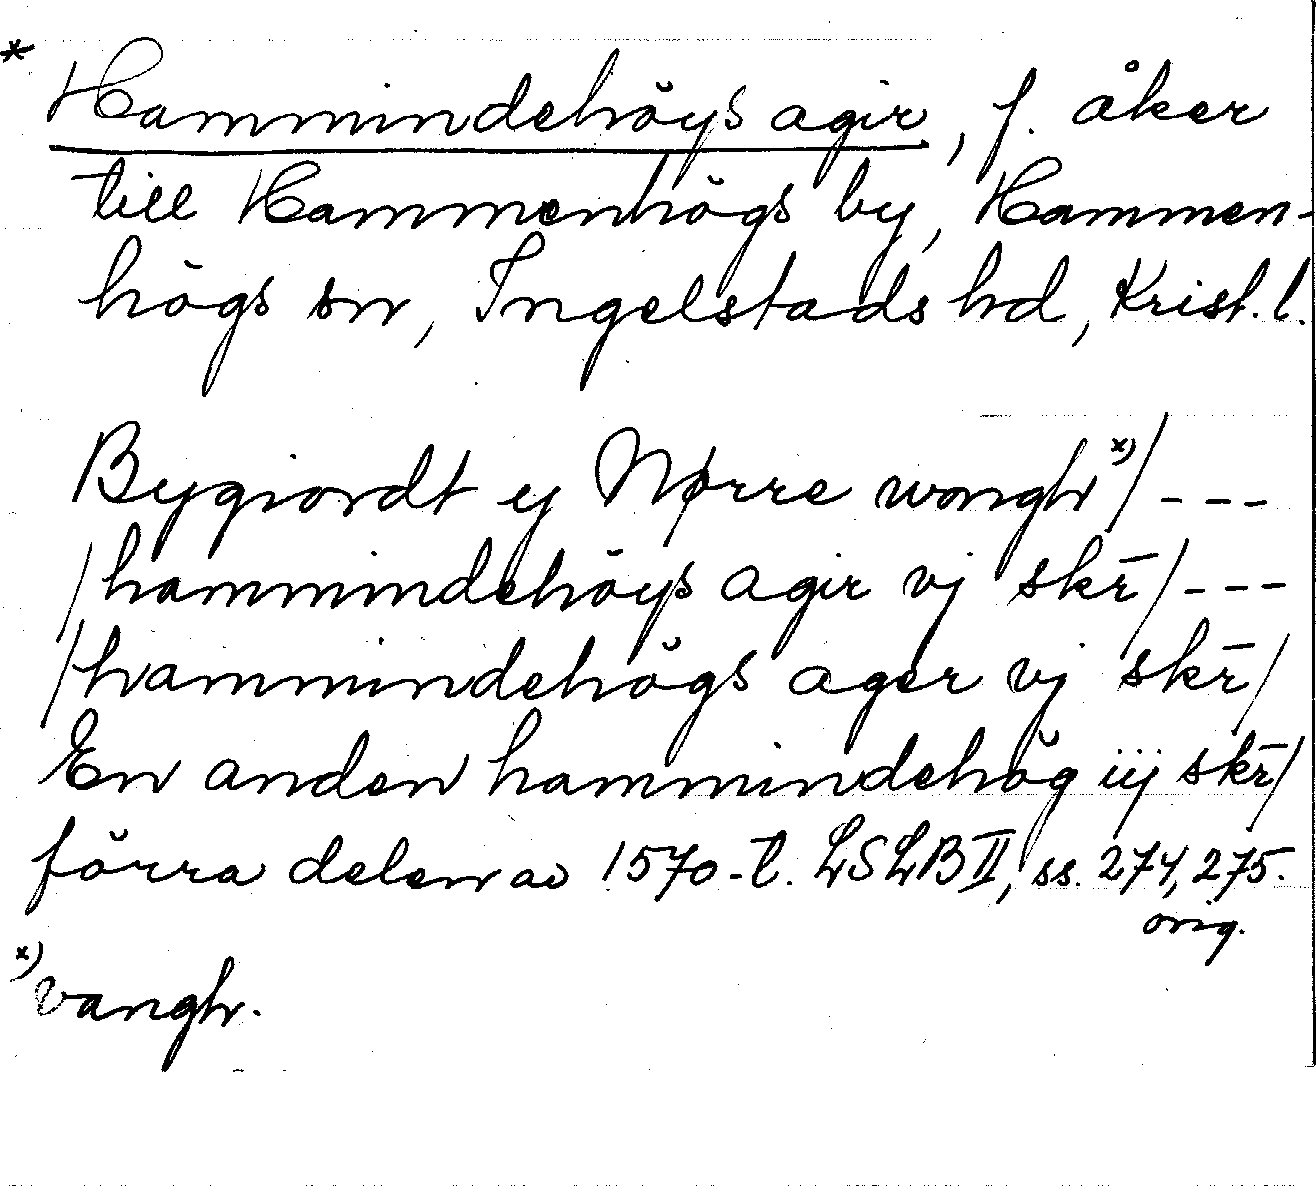 * Hammindehöÿs agir, f. åker
till Hammenhögs by, Hammen-
högs sn, Ingelstads hd, Krist. l.
Bygiordt ey Nørre wongh x)/ - - -
/hammindehöÿs agir vj skr̄/ - - -
/hammindehögs ager vj skr̄/
En anden hammindehög iij skr̄/
förra delen av 1570-t. LSLB II, ss. 274, 275.
orig.
x) vangh.